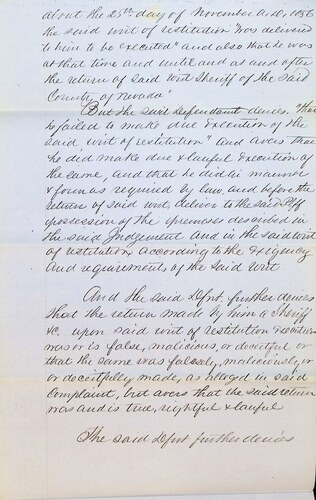 about the 25th day of November A.D. 1856
the said writ of restitution was delivered
to him to be executed" and also that he was
at that time and until and as and after
the return of said writ Sheriff of the said
County of Nevada"
But the said Defendant denies, "that
he failed to make due execution of the
said writ of restitution" and avers that
he did make due & lawful execution of
the same, and that he did in manner
& form as required by law, and before the
return of said writ, deliver to the said Plff
possession of the premises described in
the said Judgement and in the said writ
of restitution, according to the exigency
and requirements of the said writ
And the said Defnt. further denies
that the return made by him as Sheriff
&c. upon said writ of restitution
was or is false, malicious, or deceitful or
that the same was falsely, maliciously, or
or deceitfully made, as alleged in said
Complaint, but avers that the said return
was and is true, rightful & lawful
The said Defnt further denies